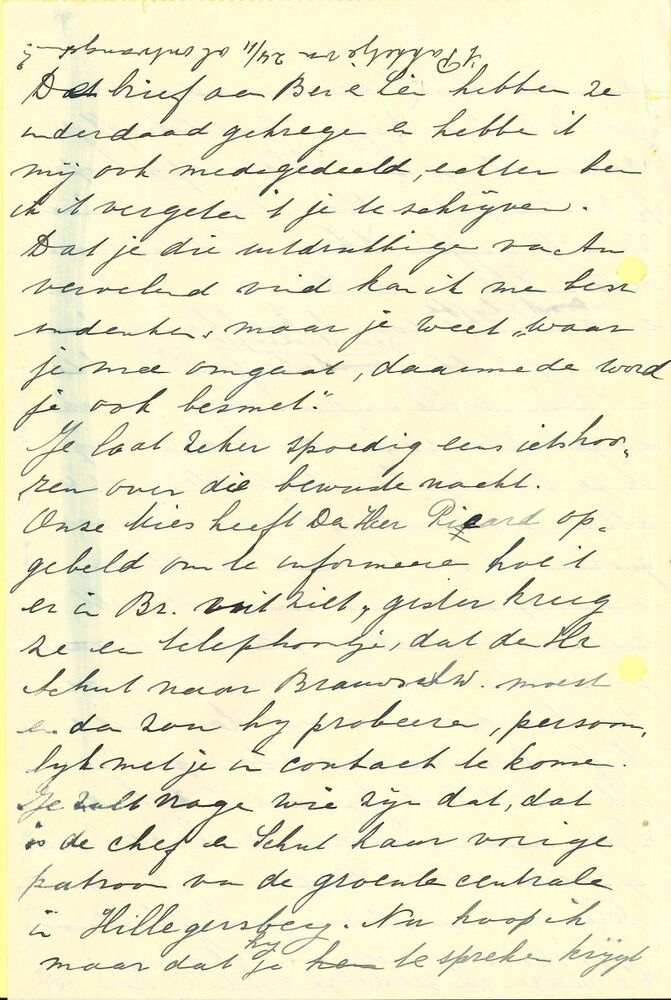 't Pakketje van 24/11 al ontvangen?
Dat brief aan Ber e Lien hebben ze
inderdaad gekrege en hebbe 't
mij ook medegedeeld, echter ben
ik 't vergeten 't je te schrijven.
Dat je die uitdrukkinge van An
vervelend vind kan ik me best
indenken, maar je weet „waar
je mee omgaat, daarmede word
je ook besmet".
Je laat zeker spoedig eens iets hoo„
ren over die bewuste nacht.
Onze Mies heeft De Heer Picard op„
gebeld om te informeere hoe 't
er in Br. uitziet, gister kreeg
ze een telephoontje, dat de Hr
Schut naar Braunschw. moest
en dan zou hij probeere, persoon„
lijk met je in contact te kome.
Je zult vrage wie zijn dat, dat
is de chef en Schut haar vorige
patroon van de groente centrale
in Hillegersberg. Nu hoop ik
maar dat hij je te spreken krijgt